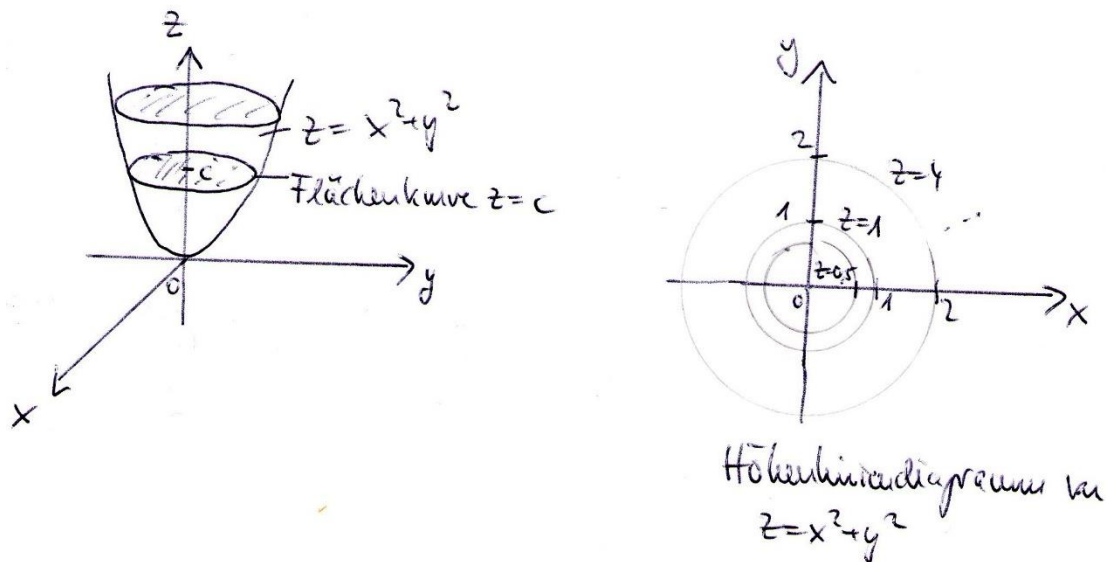 z
z = x²+y²
c
Flächenkurve z=c
0
y
x
y
2
z=4
1
z=1
z=0,5
0
1
2
x
Höhenliniendiagramm von
z=x²+y²